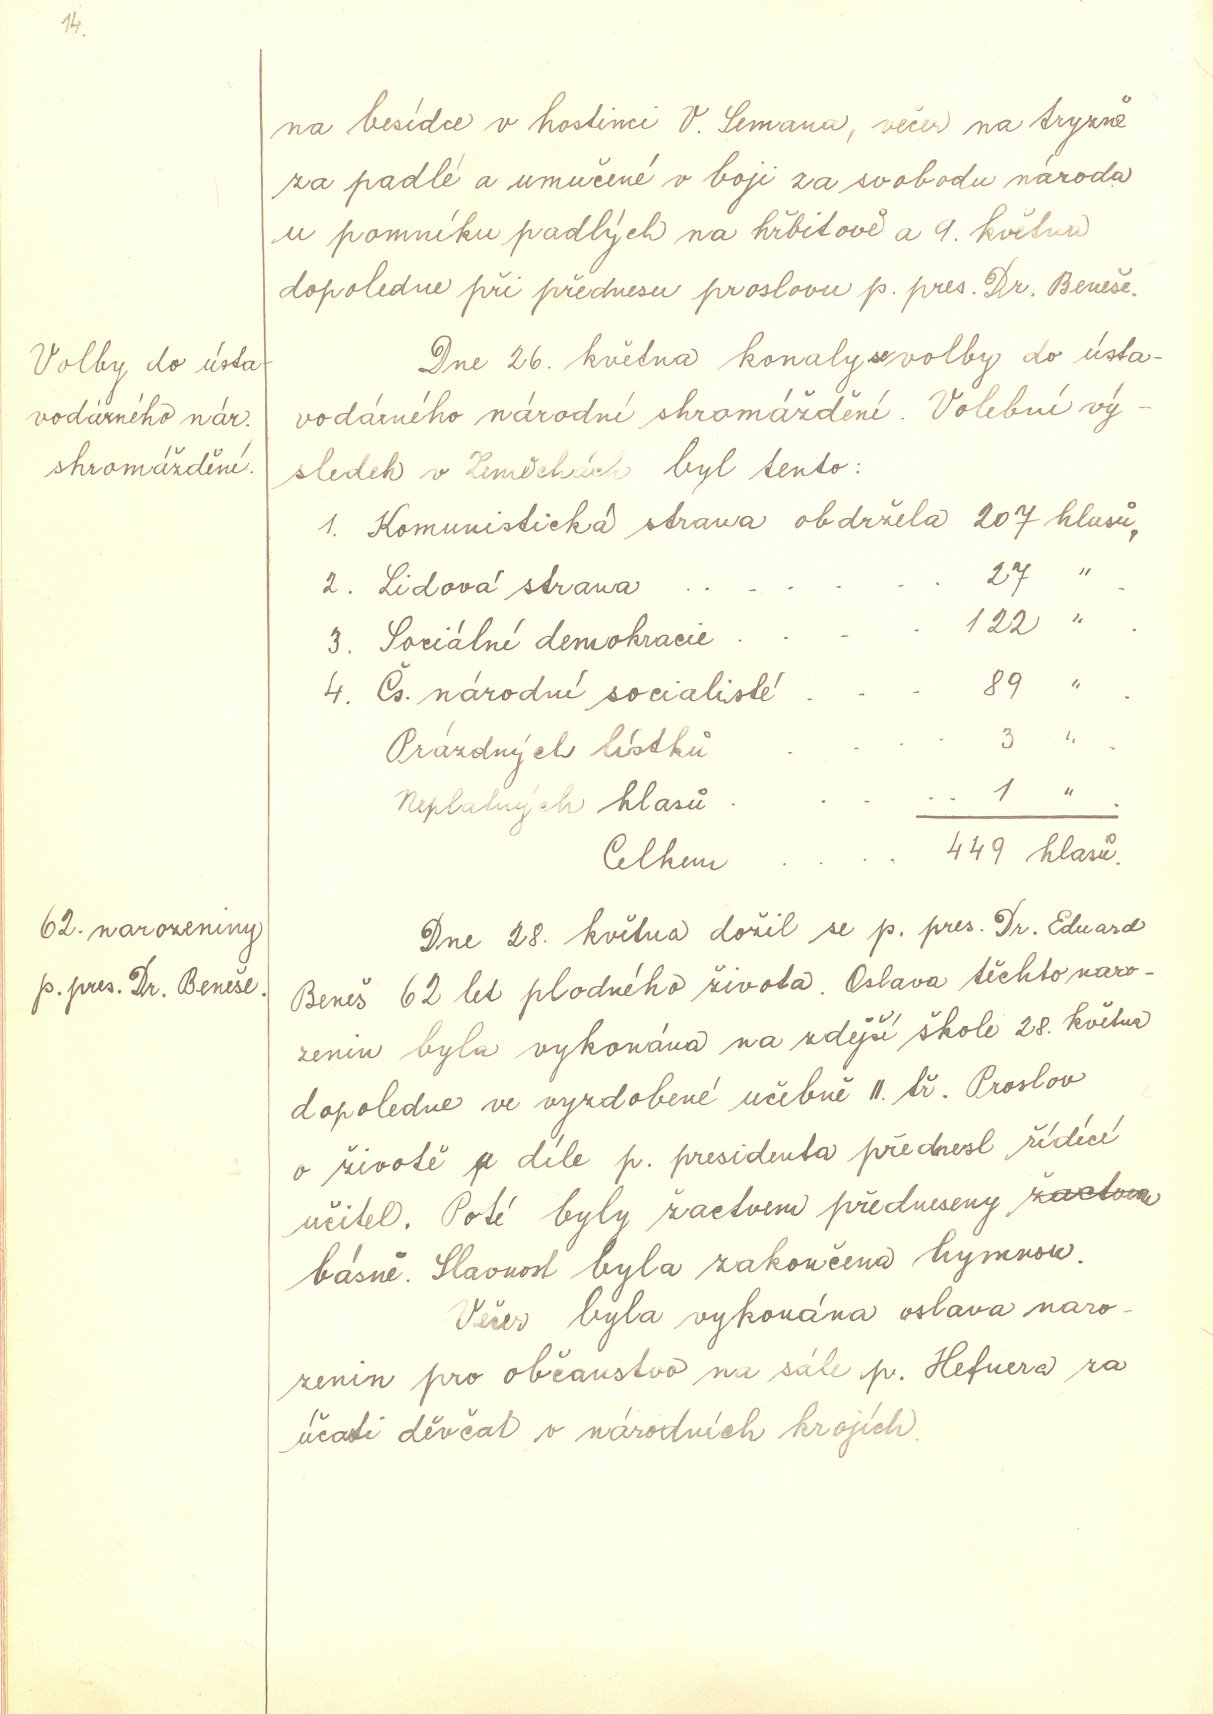 14.
na besídce v hostinci V. Lemana, večer na tryzně
za padlé a umučené v boji za svobodu národa
u pomníku padlých na hřbitově a 9. května
dopoledne při přednesu proslovu p. pres. Dr. Beneše.
Volby do ústa-
vodárného nár.
shromáždění.
Dne 26. května konaly se volby do ústa-
vodárného národní shromáždění. Volební vý-
sledek v Zeměchách byl tento:
1. Komunistická strana obdržela 207 hlasů,
2. Lidová strana . . . . . . . 27 " .
3. Sociální demokracie . . . . 122 " .
4. Čs. národní socialisté . . . 89 " .
Prázdných lístků . . . . 3 " .
Neplatných hlasů . . . . . . 1 " .
Celkem . . . . 449 hlasů.
62. narozeniny
p. pres. Dr. Beneše.
Dne 28. května dožil se p. pres. Dr. Eduard
Beneš 62 let plodného života. Oslava těchto naro-
zenin byla vykonána na zdejší škole 28. května
dopoledne ve vyzdobené učebně II. tř. Proslov
o životě a díle p. presidenta přednesl řídící
učitel. Poté byly žactvem předneseny žactvem
básně. Slavnost byla zakončena hymnou.
Večer byla vykonána oslava naro-
zenin pro občanstvo na sále p. Hefnera za
účasti děvčat v národních krojích.